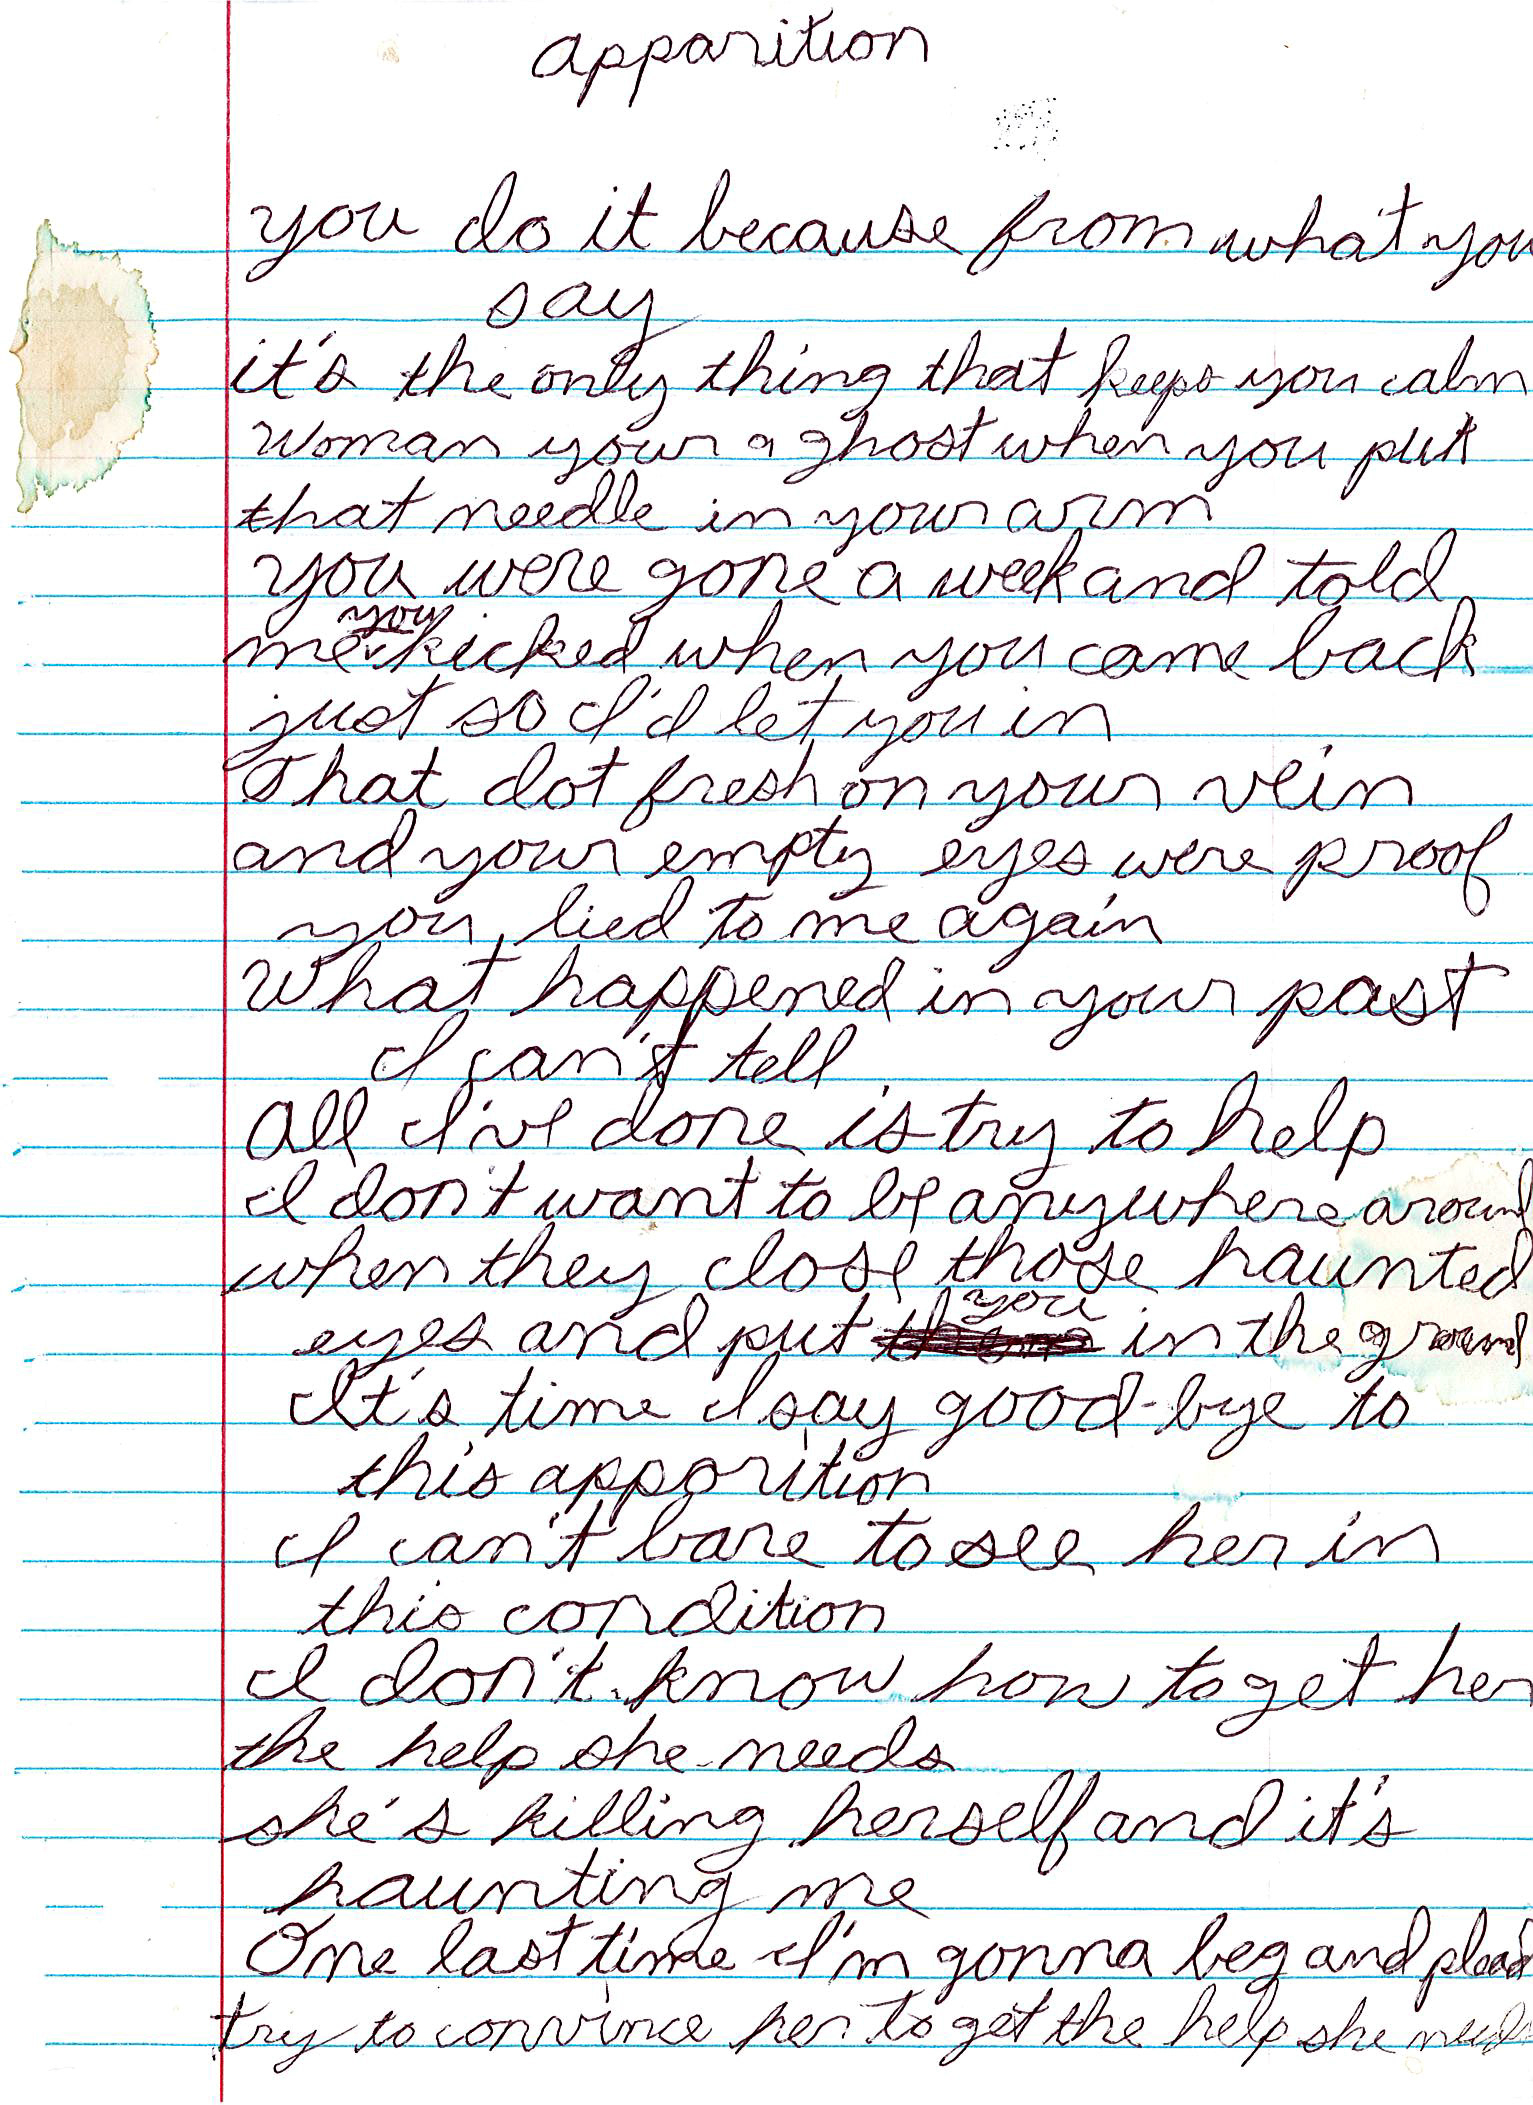 apparition
you do it because from what you
say
it's the only thing that keeps you calm
Woman your a ghost when you put
that needle in your arm
you were gone a week and told
you
me kicked when you came back
just so I'd let you in
That dot fresh on your vein
and your empty eyes were proof
you lied to me again
What happened in your past
I can't tell
All I've done is try to help
I don't want to be anywhere around
when they close those haunted
you
eyes and put them in the ground
It's time I say good-bye to
this apparition
I can't bare to see her in
this condition
I don't know how to get her
the help she needs
she's killing herself and it's
haunting me
One last time I'm gonna beg and plead
try to convince her to get the help she needs